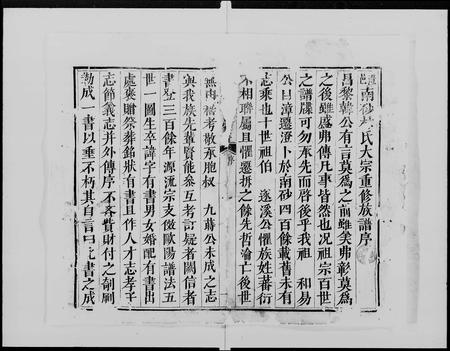 南砂林氏大宗重修族譜序
昌黎韓公有言莫為之前雖美弗彰莫為
之後雖盛弗傳凡事皆然也况祖宗百世
之譜牒可勿承先而啓後乎我祖 和易
公曰漳遷澄卜於南砂四百餘載舊未有
志乘也十世祖伯 遂溪公懼族姓蕃衍
不相聯屬且懼遷拆之餘先哲淪亡後世
無所稽考敬承胞叔 九蒔公未成之志
與我族先輩賢能參互考訂疑者闕信者
書登三百餘年源流宗支倣歐陽譜法五
世一圖生卒諱字有書男女婚配有書出
處褒贈祭葬銘狀有書且作人才志孝子
志節義志并外傳序不吝費財付之剞劂
勒成一書以垂不朽其自言曰此書之成